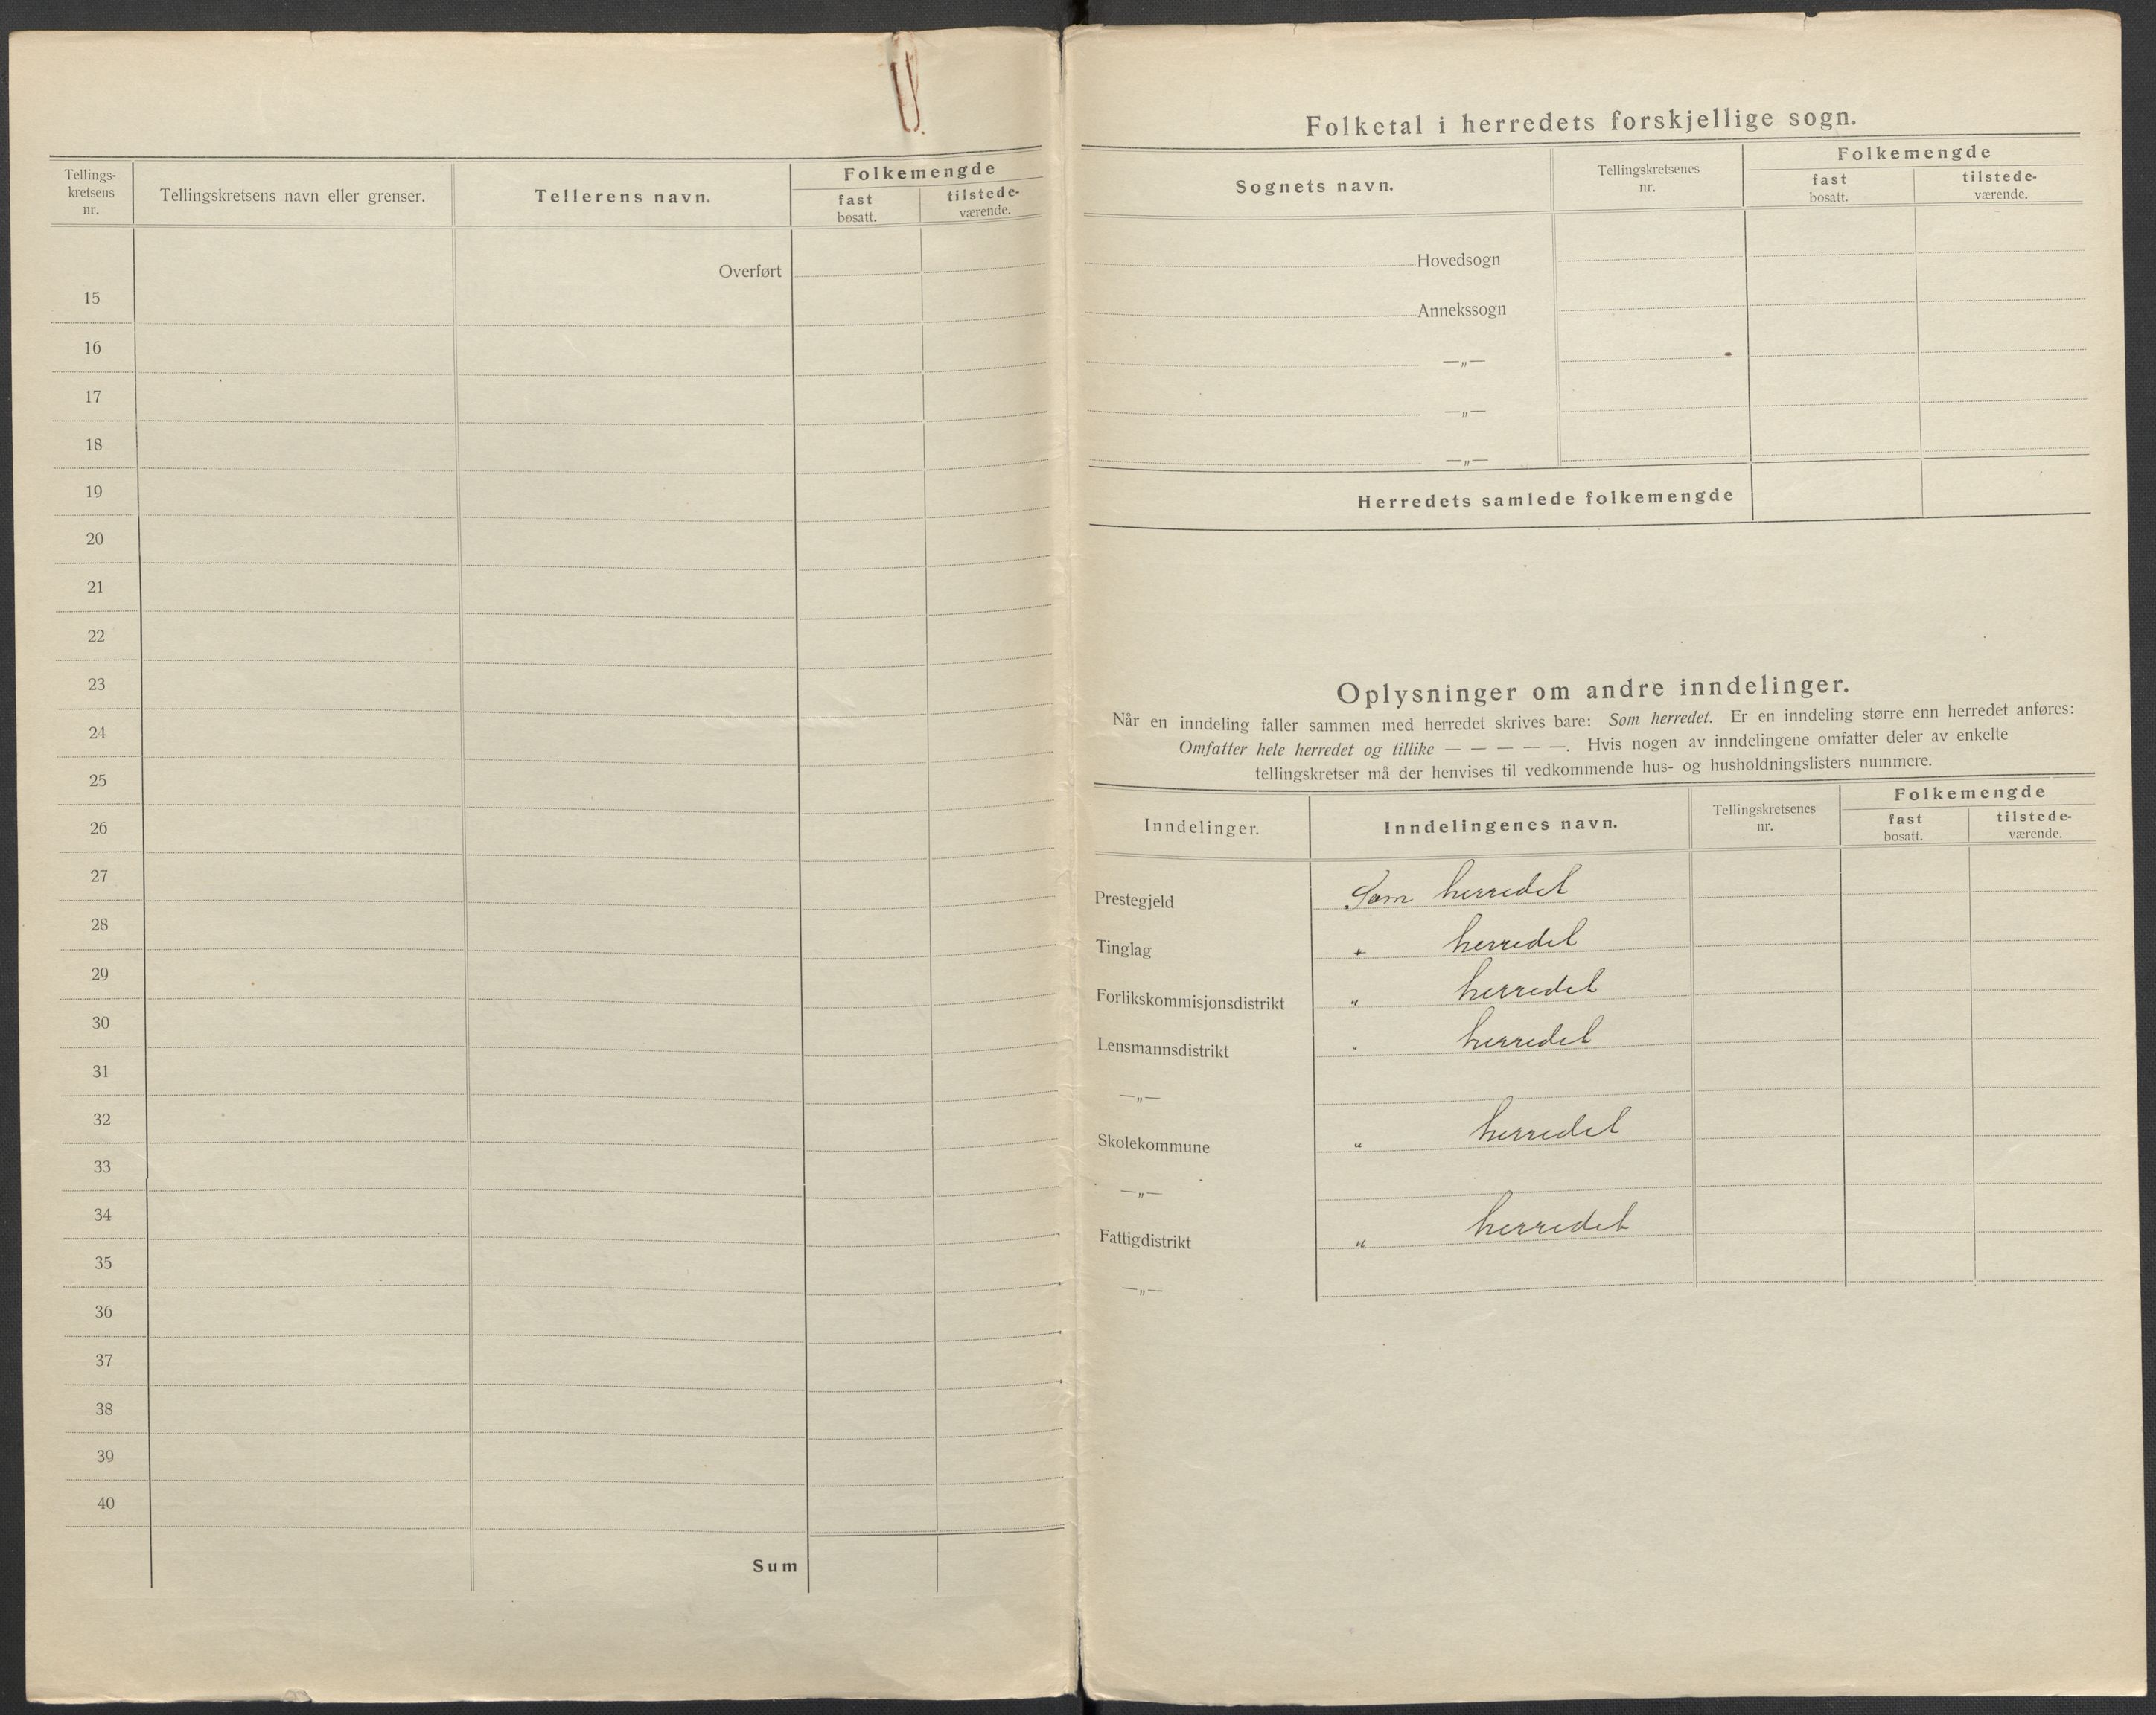 Tellings-
kretsens
nr.
Tellingskretsens navn eller grenser.
Tellerens navn.
Folkemengde
fast
bosatt.
tilstede-
værende.
Overført
15
16
17
18
19
20
21
22
23
24
25
26
27
28
29
30
31
32
33
34
35
36
37
38
39
40
Sum
Folketal i herredets forskjellige sogn.
Sognets navn.
Tellingskretsenes
nr.
Folkemengde
fast
bosatt.
tilstede-
værende.
Hovedsogn
Annekssogn
—„—
—„—
—„—
Herredets samlede folkemengde
Oplysninger om andre inndelinger.
Når en inndeling faller sammen med herredet skrives bare: Som herredet. Er en inndeling større enn herredet anføres:
Omfatter hele herredet og tillike — — — — —. Hvis nogen av inndelingene omfatter deler av enkelte
tellingskretser må der henvises til vedkommende hus- og husholdningslisters nummere.
Inndelinger.
Inndelingenes navn.
Tellingskretsenes
nr.
Folkemengde
fast
bosatt.
tilstede-
værende.
Prestegjeld Som herredet
Tinglag " herredet
Forlikskommisjonsdistrikt " herredet
Lensmannsdistrikt " herredet
—„—
Skolekommune " herredet
—„—
Fattigdistrikt " herredet
—„—